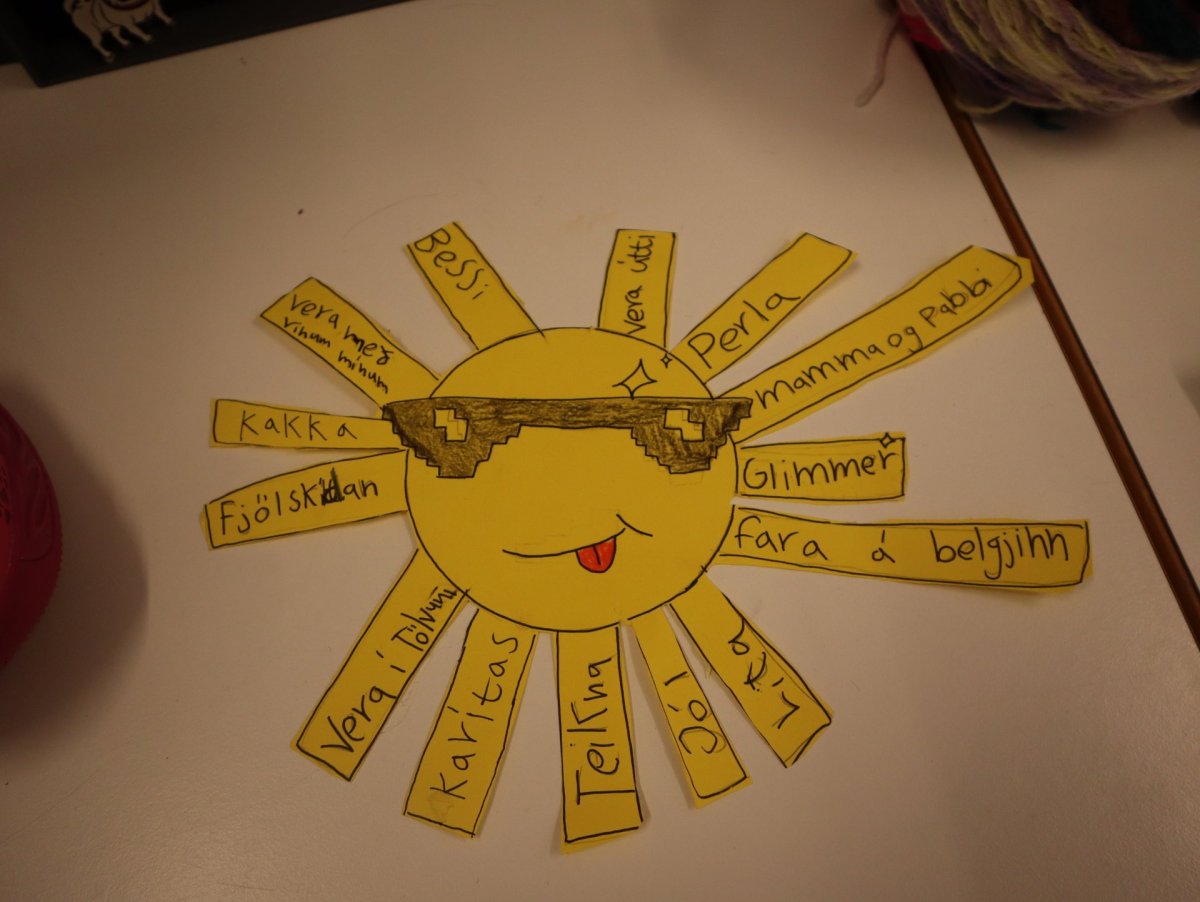 Bessi
vera útti
Perla
mamma og Pabbi
Glimmer
fara á belgjihn
Líra
Jól
Teikna
Karítas
Vera í Tölvuni
Fjölskidan
Kakka
vera með
vinum mínum